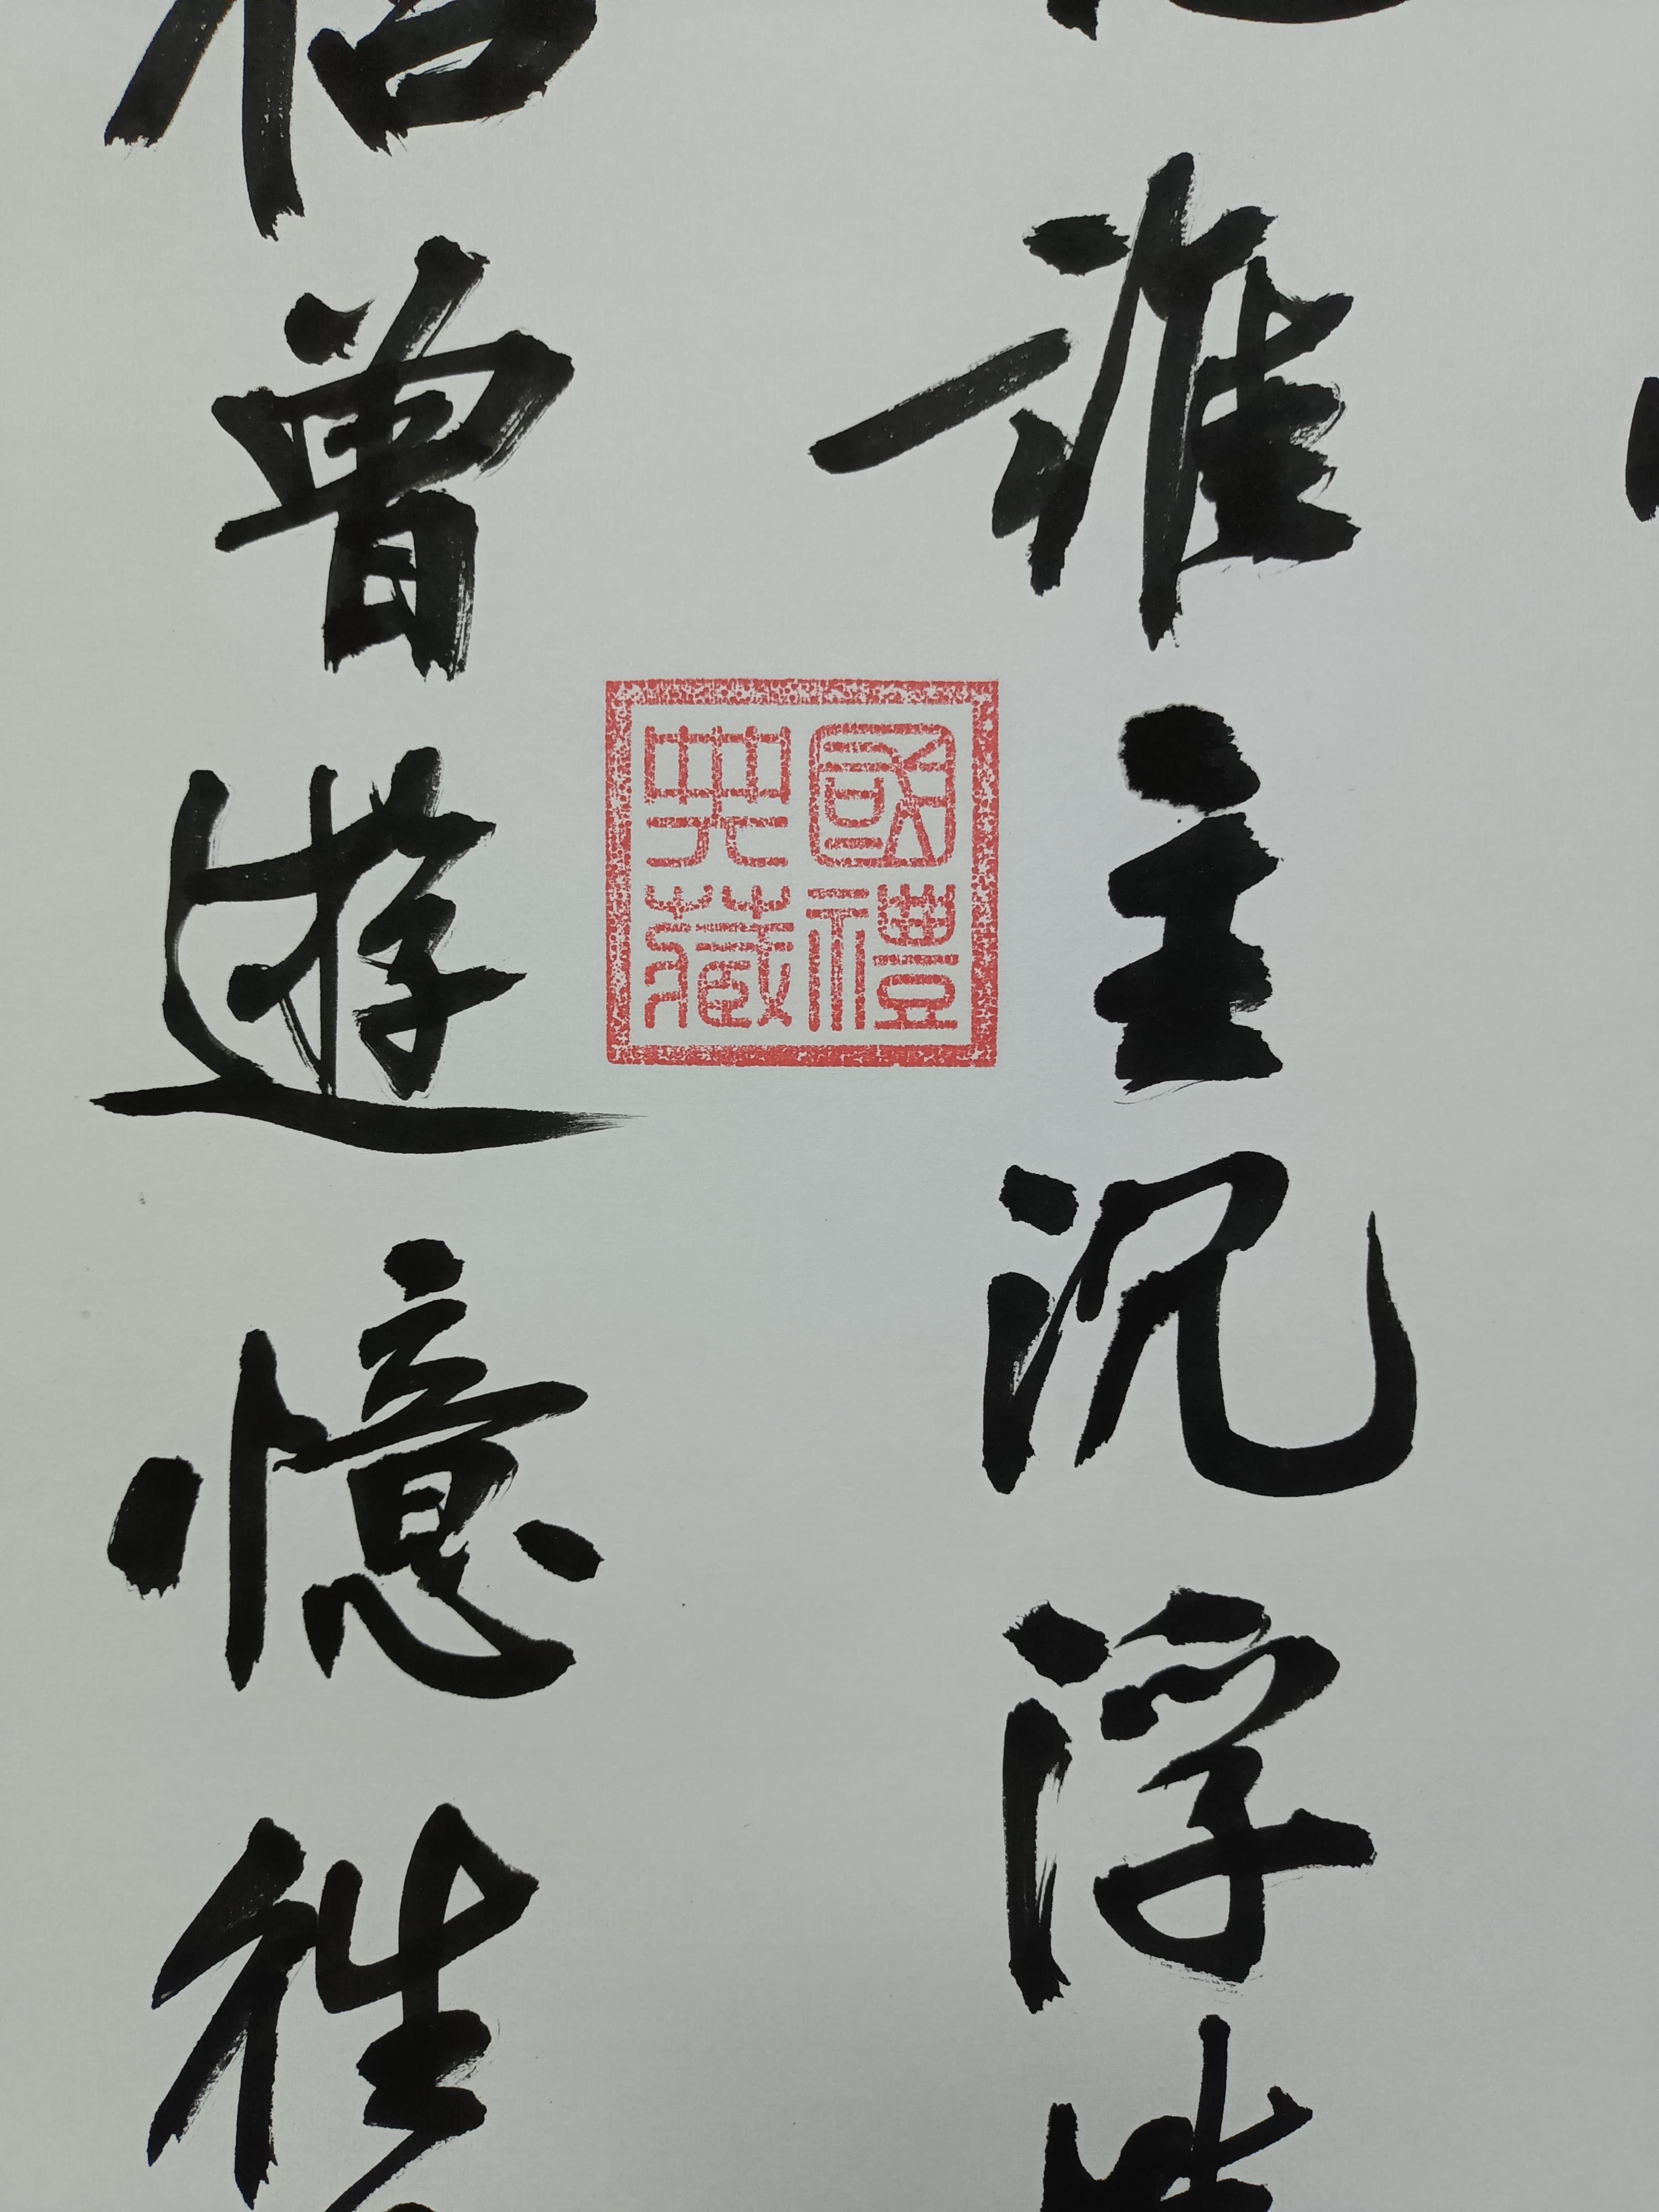 誰主沉浮
國禮
典藏
侣曾遊憶往